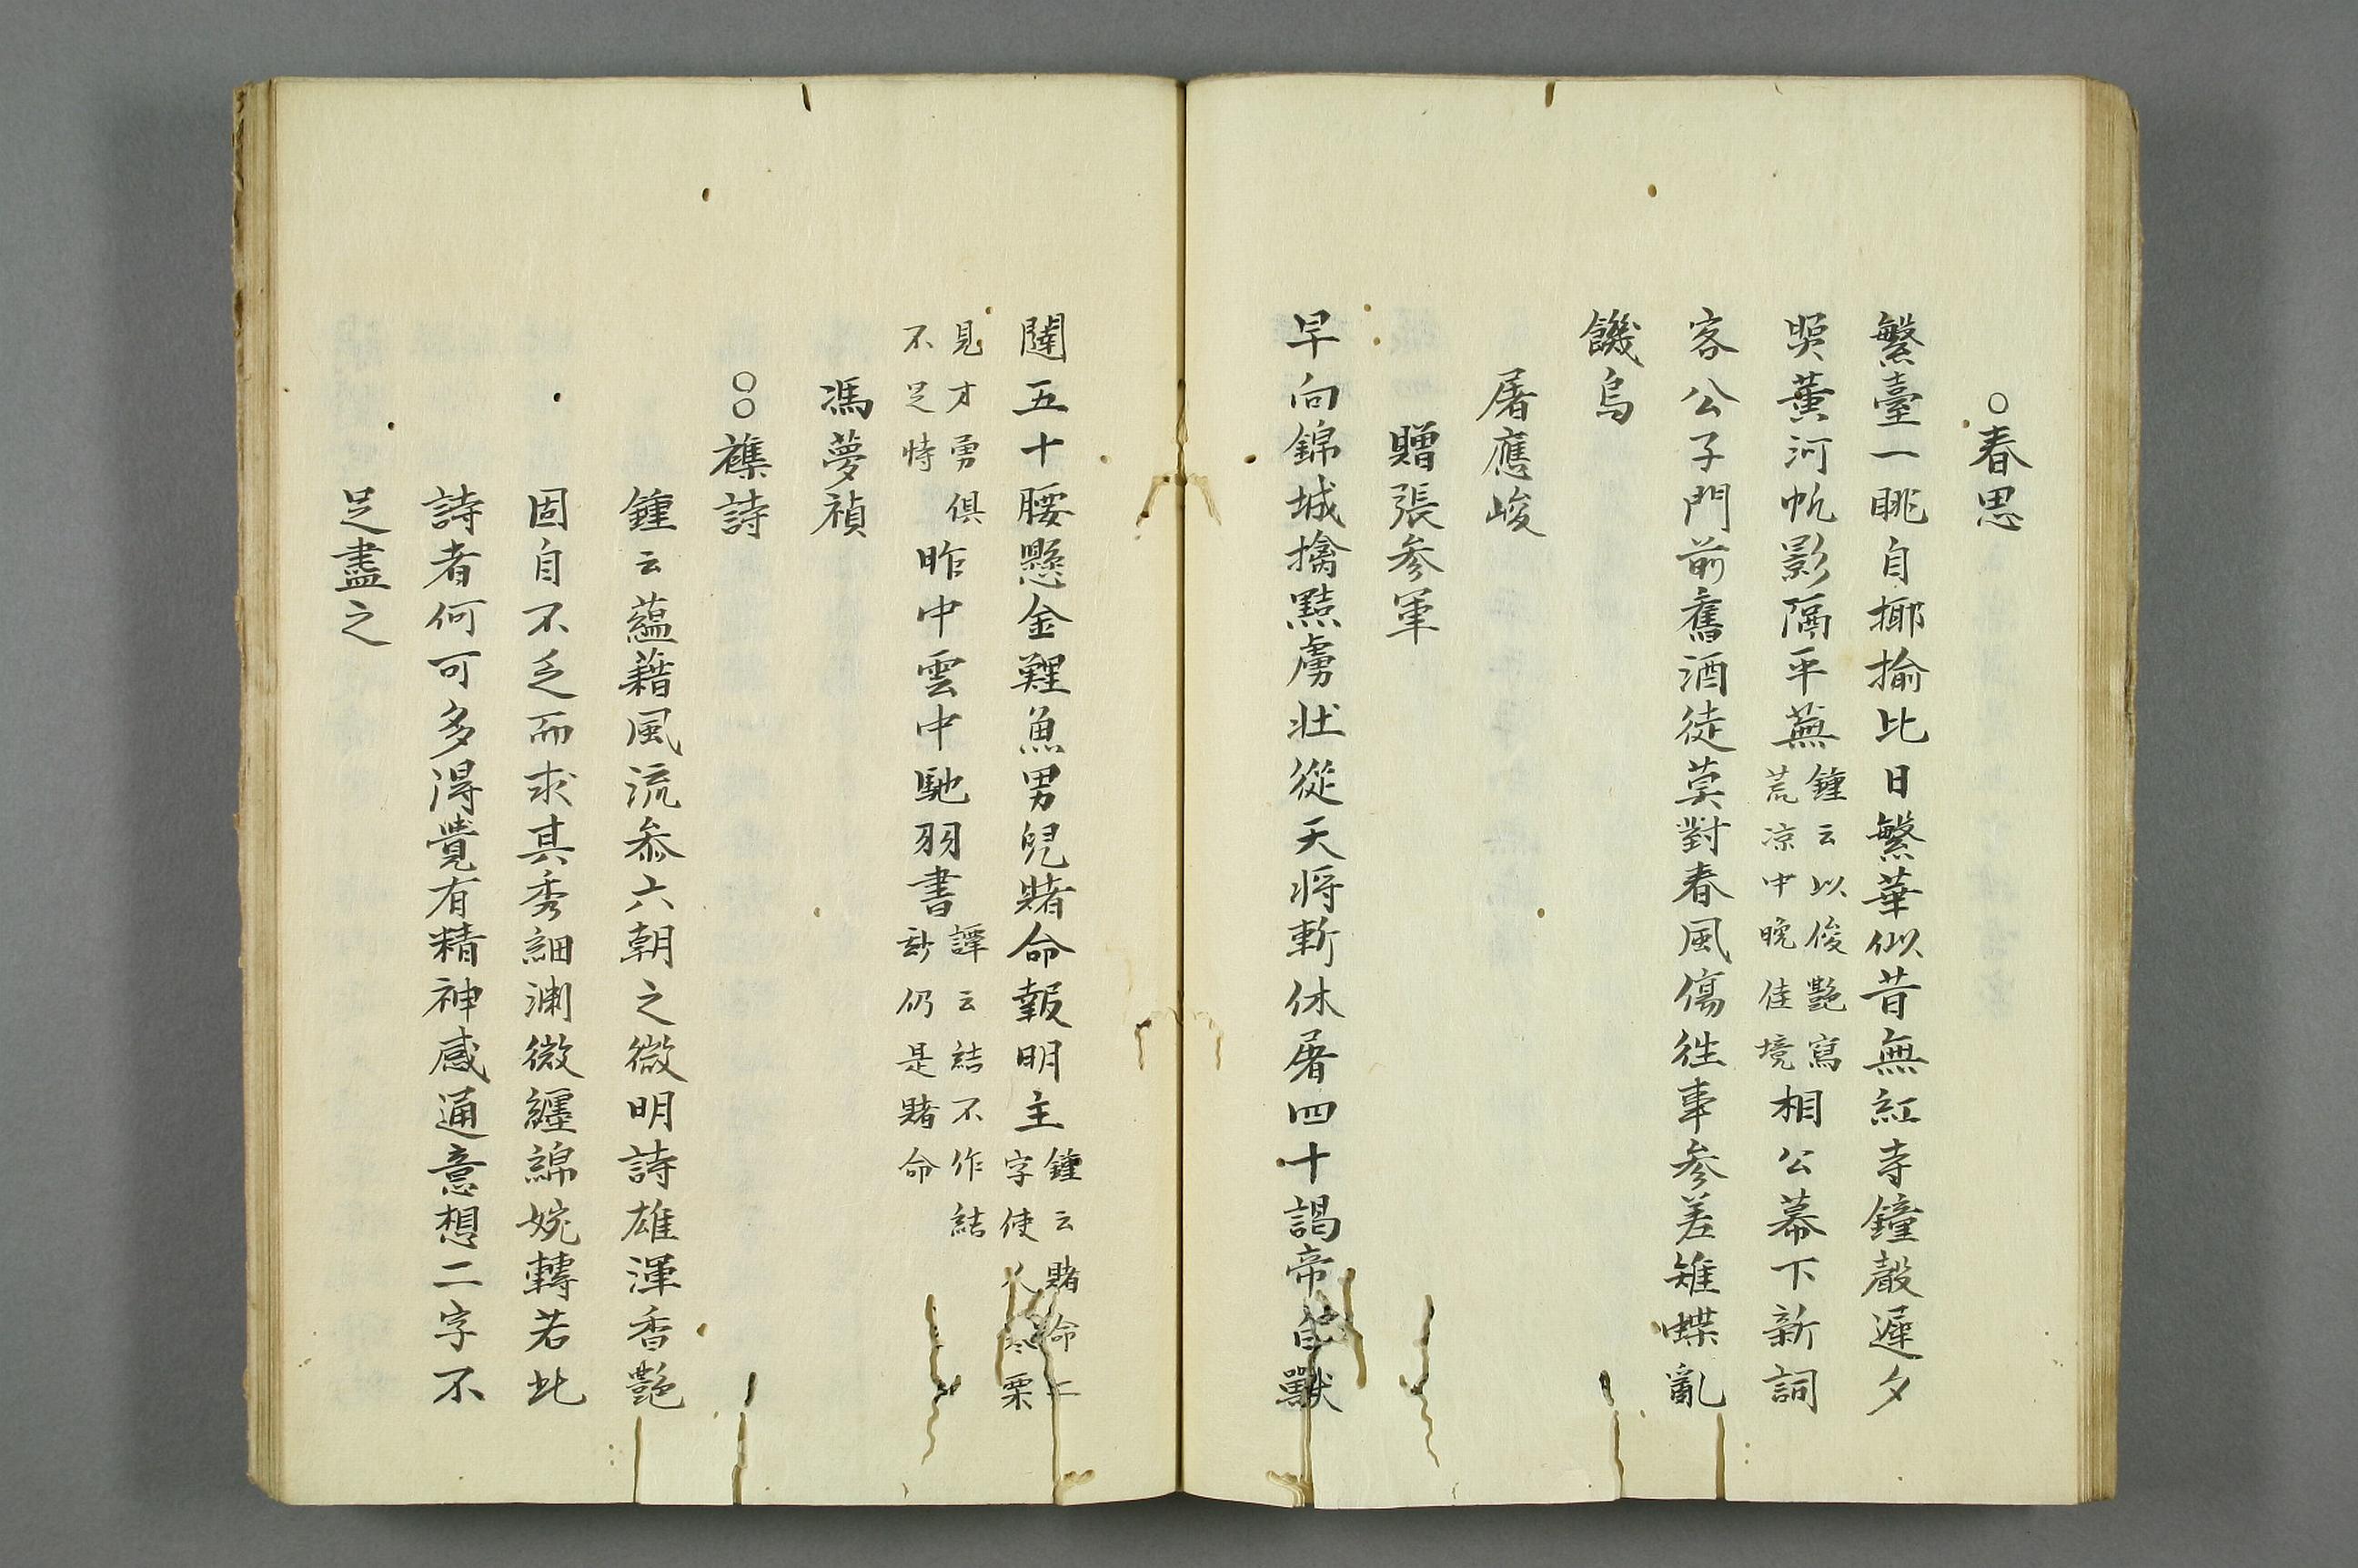 ○春思
繁臺一眺自揶揄比日繁華似昔無紅寺鐘聲遲夕
照黃河帆影隔平蕪鍾云以俊艷寫
荒凉中晚佳境相公幕下新詞
客公子門前舊酒徒莫對春風傷往事參差雉蝶亂
饑烏
屠應峻
贈張參軍
早向錦城擒黠虜壯從天將斬休屠四十謁帝自獸
闥五十腰懸金鯉魚男兒賭命報明主鍾云賭命二
字使人寒栗
見才勇俱
不足恃昨中雲中馳羽書譚云結不作結
勢仍是賭命
馮夢禎
○○襍詩
鍾云蘊藉風流叅六朝之微明詩雄渾香艷
固自不乏而求其秀細淵微纏綿婉轉若此
詩者何可多得覺有精神感通意想二字不
足盡之